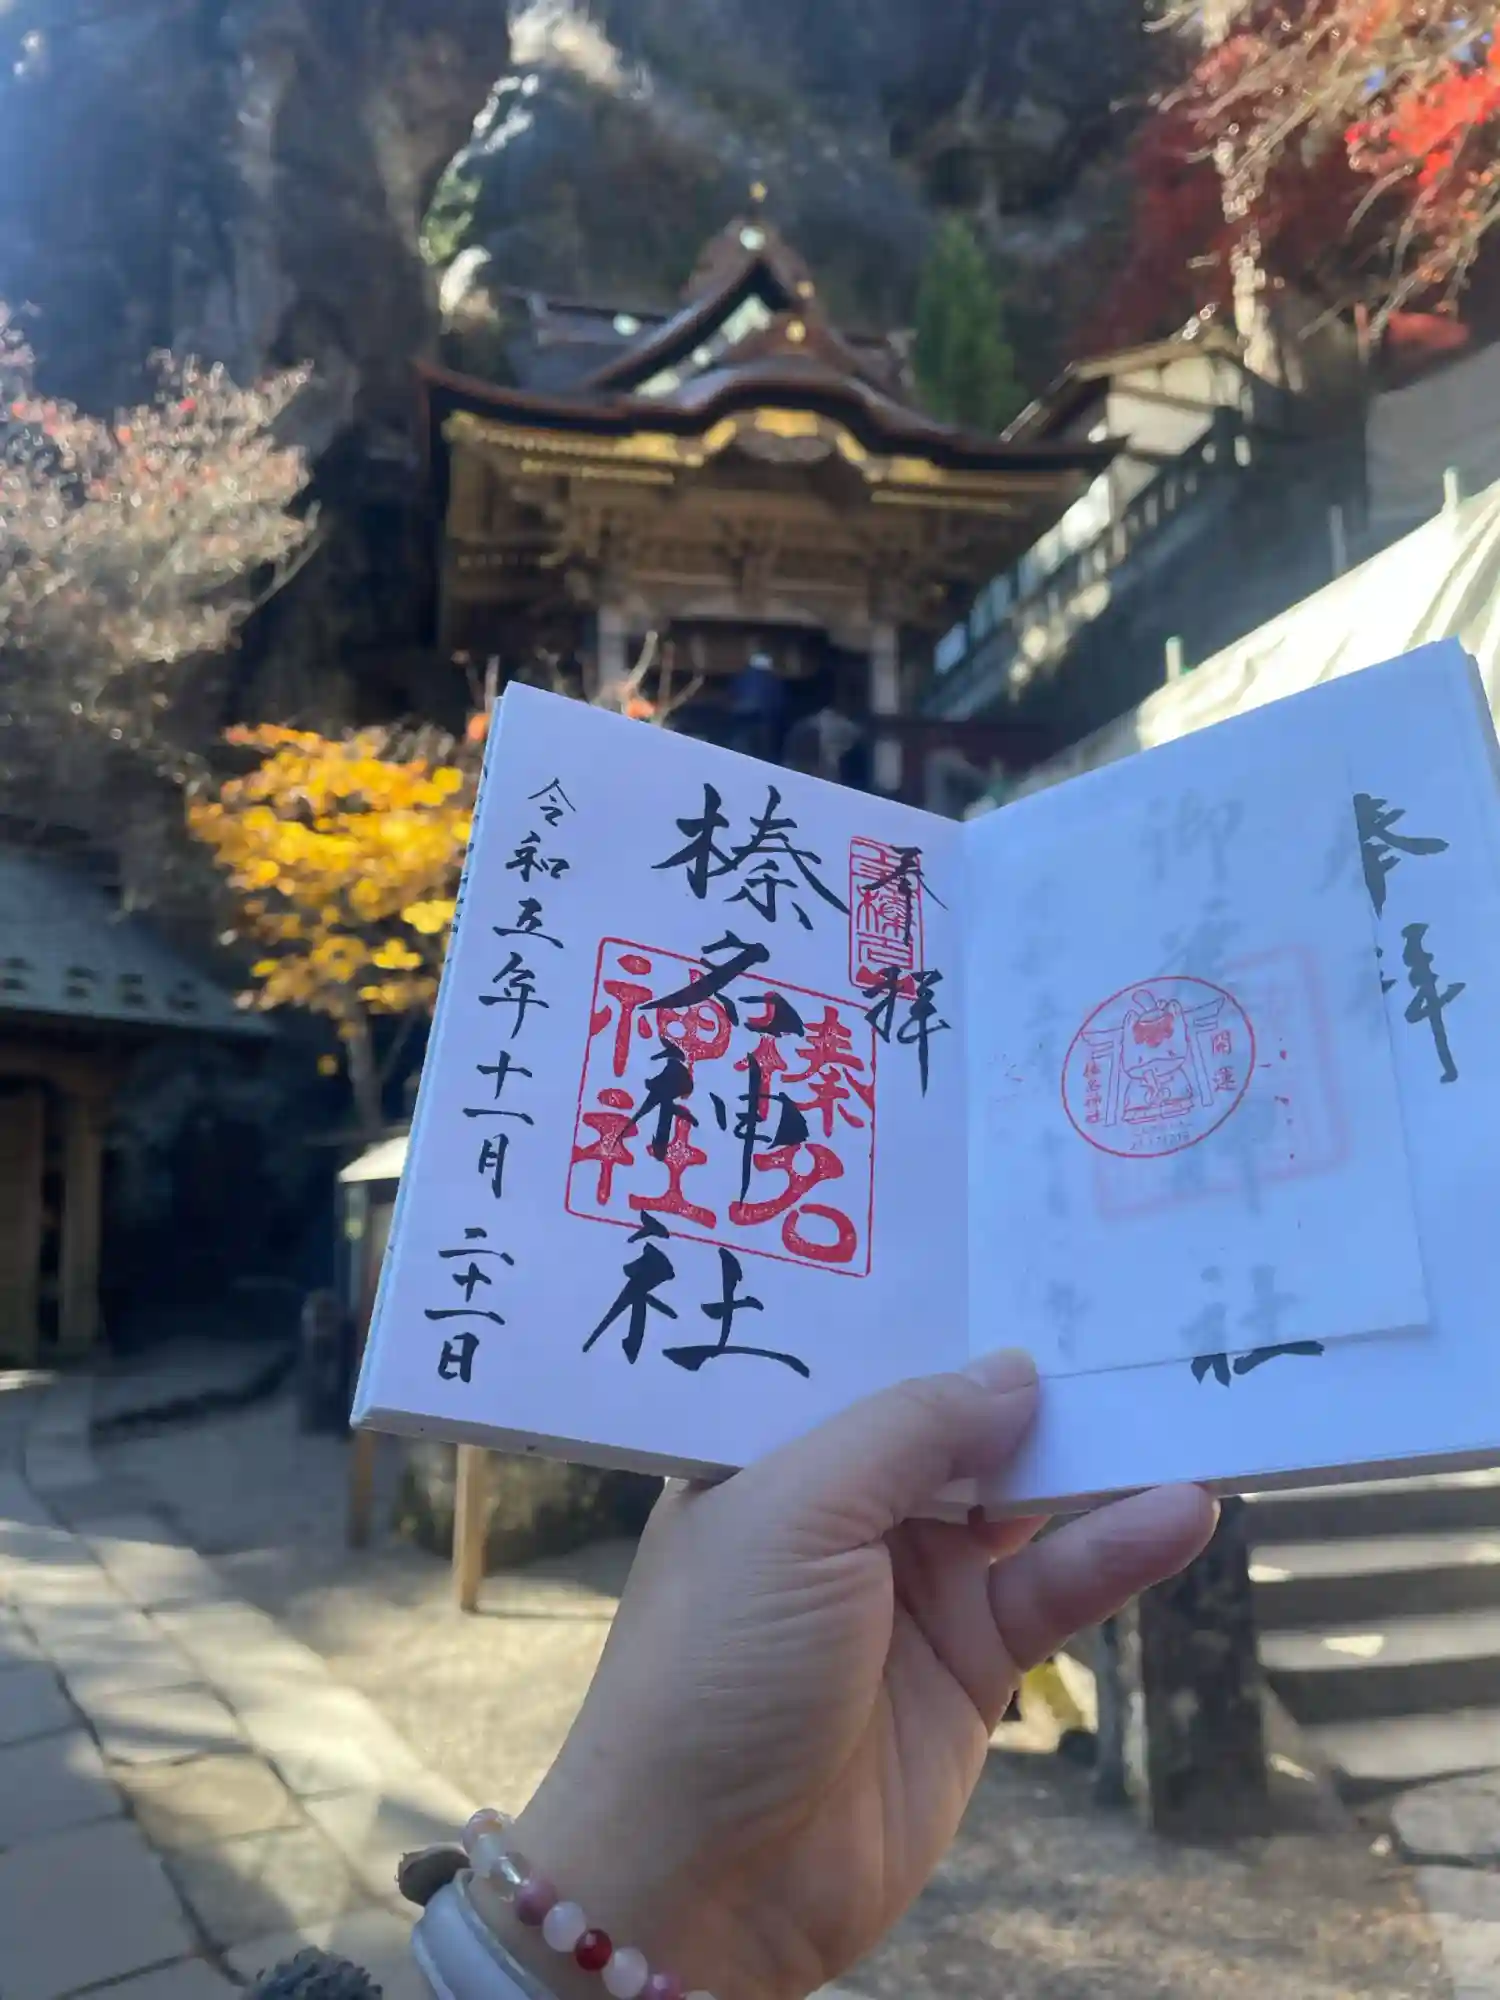 奉拝
社
開運
榛名神社
奉拝
榛名神社
榛名神社
令和五年十一月二十一日